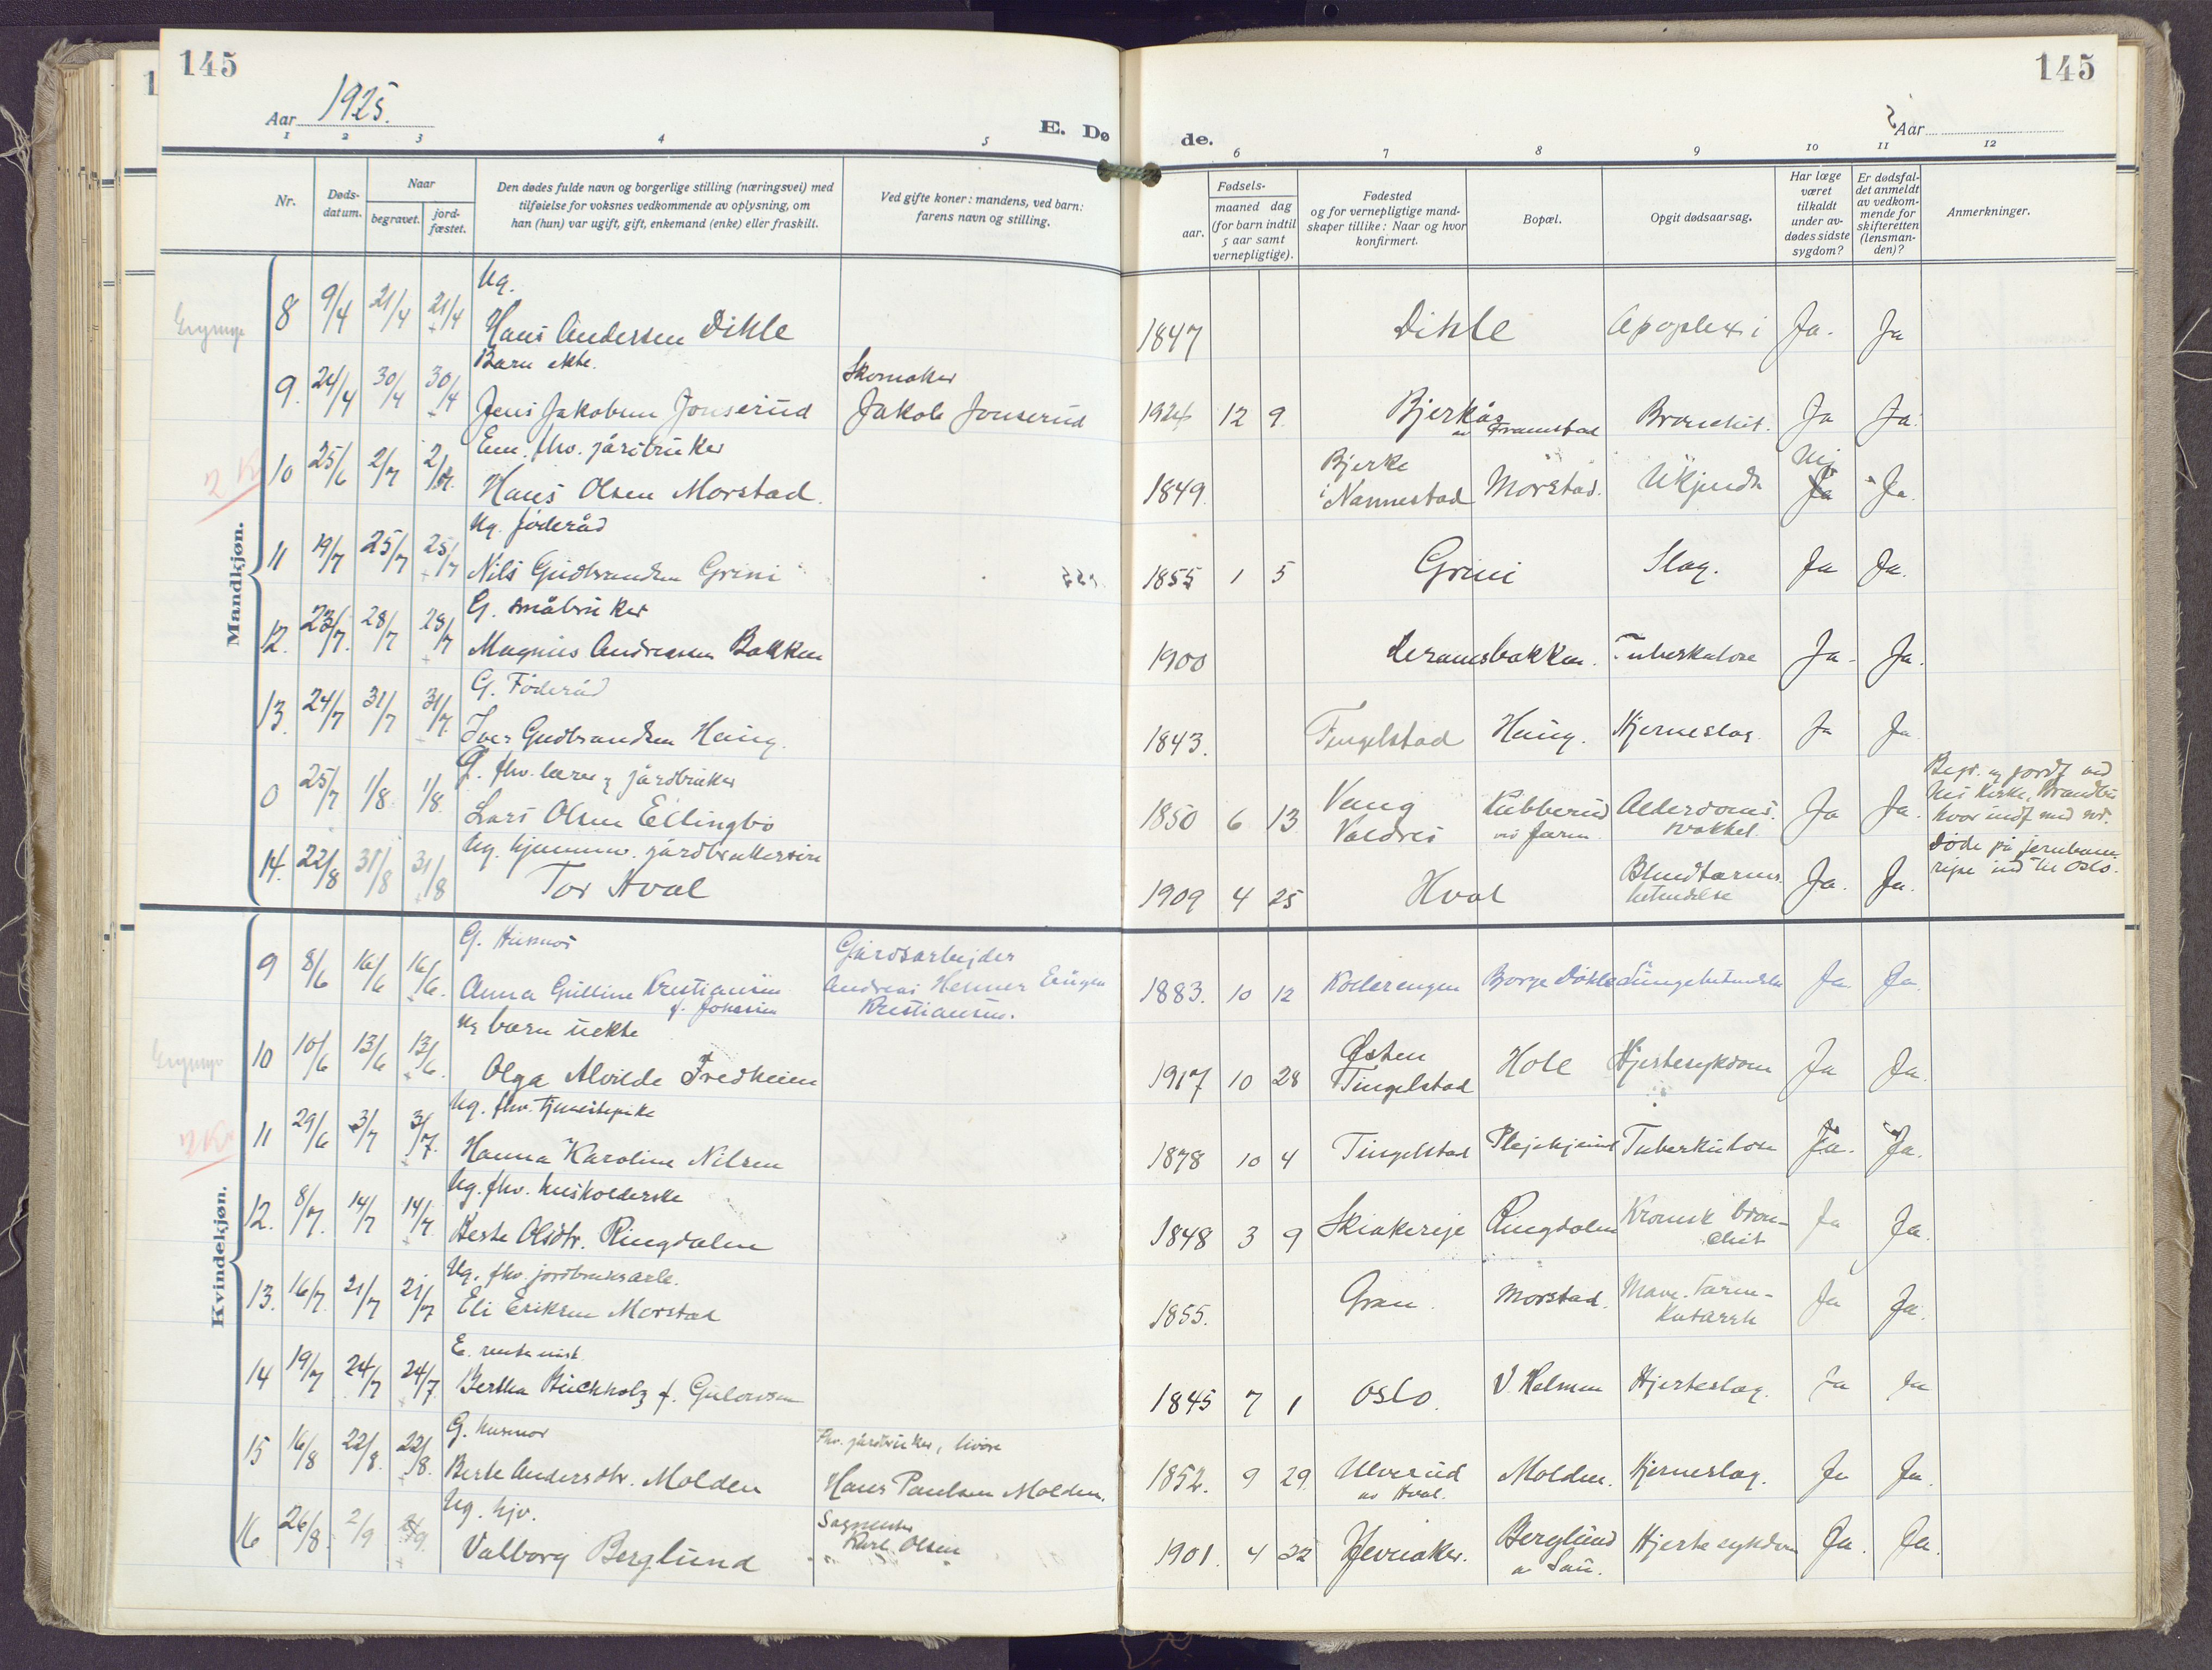 145
145
Aar 1925.
E. Dø
de.
Aar
1 2 3 4 5 6 7 8 9 10 11 12
Nr.
Døds-
datum.
Naar
begravet.
jord-
fæstet.
Den dødes fulde navn og borgerlige stilling (næringsvei) med
tilføielse for voksnes vedkommende av oplysning, om
han (hun) var ugift, gift, enkemand (enke) eller fraskilt.
Ved gifte koner: mandens, ved barn:
farens navn og stilling.
Fødsels-
aar.
maaned dag
(for barn indtil
5 aar samt
vernepligtige).
Fødested
og for vernepligtige mand-
skaper tillike: Naar og hvor
konfirmert.
Bopæl.
Opgit dødsaarsag.
Har læge
været
tilkaldt
under av-
dødes sidste
sygdom?
Er dødsfal-
det anmeldt
av vedkom-
mende for
skifteretten
(lensman-
den)?
Anmerkninger.
Mandkjøn.
Ug.
8 9/4 21/4 21/4 Hans Andersen Dihle 1847 Dihle Apoplexi Ja. Ja
Barn ekte. Skomaker
9. 24/4 30/4 30/4 Jens Jakobsen Jonserud Jakob Jonserud 1924 12 9 Bjerkås Bronchit. Ja Ja.
av Framstad
2 Kr
Em. fhv. gårdbruker Bjerke Nej
10 25/6 2/7 2/7. Hans Olsen Morstad. 1849. i Nannestad Morstad. Ukjendt Ja Ja.
Ug. føderåd
11 19/7 25/7 25/7 Nils Gudbrandsen Grini 1855 1 5 Grini Slag. Ja Ja.
G. småbruker
12. 23/7. 28/7 28/7 Magnus Andreassen Bakken 1900 Tuberkulose Ja. Ja.
G. Føderåd
13. 24/7 31/7 31/7. Iver Gudbrandsen Haug. 1843. Tingelstad Haug. Hjerneslag Ja Ja
G. fhv. lærer & gårdbruker
0 25/7 1/8. 1/8. Lars Olsen Ellingbø 1850 6 13 Vang Valdres Kubberud Alderdoms- Ja Ja.
svakhet
Begr. og jordf ved
Nes Kirke, Brandbu
hvor indf med nr.
Ug. hjemmev. gårdbrukersøn
14. 22/8 31/8 31/8 Tor Hval 1909 4 25 Hval Blindtarms- Ja. Ja.
betændelse
Døde på jernbane-
reise ind til Oslo.
Kvindekjøn.
G. Husmor Gårdsarbejder
9 8/6 16/6 16/6. Anna Gulline Kristiansen Andreas Henner Engen 1883. 10 12 Kølerengen Borge Dihle Lungebetændelse Ja Ja.
f. Johnsen Kristiansen.
Ug barn uekte
10 10/6 13/6 13/6. Olga Alvilde Fredheim 1917 10 28 Østen Tingelstad Hole Hjertesykdom Ja Ja.
2 Kr
Ug. fhv. tjenestepike
11 29/6 3/7 3/7. Hanna Karoline Nilsen 1878 10 4 Tingelstad Plejehjemmet Tuberkulose Ja. Ja.
Ug. fhv. husholderske
12. 8/7. 14/7 14/7. Berte Olsdtr. Ringdalen 1848 3 9 Skiakereje Ringdalen Kronisk bron- Ja Ja.
chit
Ug. fhv. jordbruksarb.
13. 16/7. 21/7 21/7 Eli Eriksen Morstad 1855. Gran. Morstad. Mave-tarm- Ja Ja.
Katarrh
E. rentenist
14 19/7 24/7 24/7. Bertha Buchholz f. Gulowsen 1845 7 1 Oslo. V. Helmen Hjerteslag. Ja Ja
G. husmor Fhv. gårdbruker, livøre
15 16/8 22/8. 22/8. Berte Andersdtr. Molden Hans Paulsen Molden. 1852. 9 29. Ulverud Molden. Hjerneslag. Ja Ja.
av Hval.
Ug. hjv. Sagmester
16 26/8. 2/9 2/9. Valborg Berglund Karl Olsen 1901. 4 22 Jevnaker. Berglund Hjertesykdom Ja. Ja.